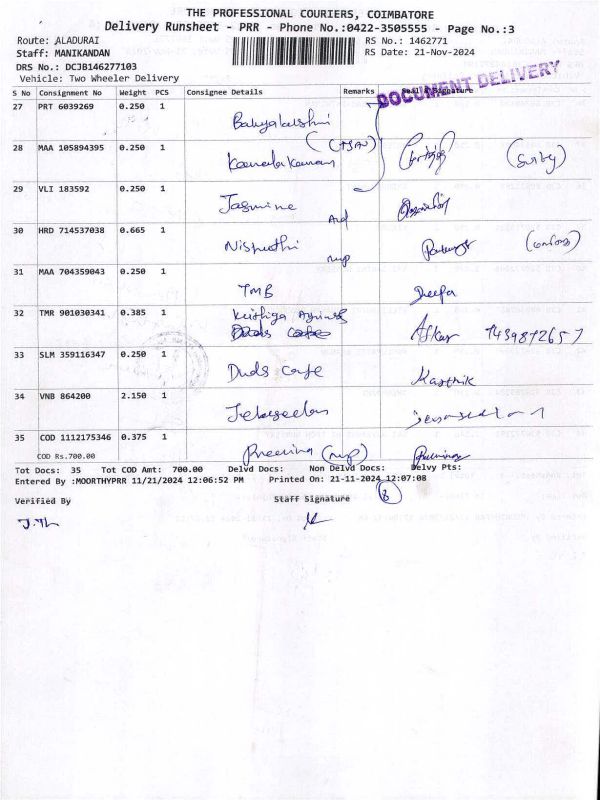 THE PROFESSIONAL COURIERS, COIMBATORE
Delivery Runsheet - PRR - Phone No.:0422-3505555 - Page No.:3
Route: ALADURAI RS No.: 1462771
Staff: MANIKANDAN RS Date: 21-Nov-2024
DRS No.: DCJB146277103
Vehicle: Two Wheeler Delivery
DOCUMENT DELIVERY
S No Consignment No Weight PCS Consignee Details Remarks Seal & Signature
27 PRT 6039269 0.250 1
28 MAA 105894395 0.250 1
29 VLI 183592 0.250 1 Jasmine
30 HRD 714537038 0.665 1
31 MAA 704359043 0.250 1 TMB Deepa
32 TMR 901030341 0.385 1 7439872657
33 SLM 359116347 0.250 1 Duds Cafe Karthik
34 VNB 864200 2.150 1
35 COD 1112175346 0.375 1
COD Rs.700.00
Tot Docs: 35 Tot COD Amt: 700.00 Delvd Docs: Non Delvd Docs: Delvy Pts:
Entered By :MOORTHYPRR 11/21/2024 12:06:52 PM Printed On: 21-11-2024 12:07:08
Verified By Staff Signature 8